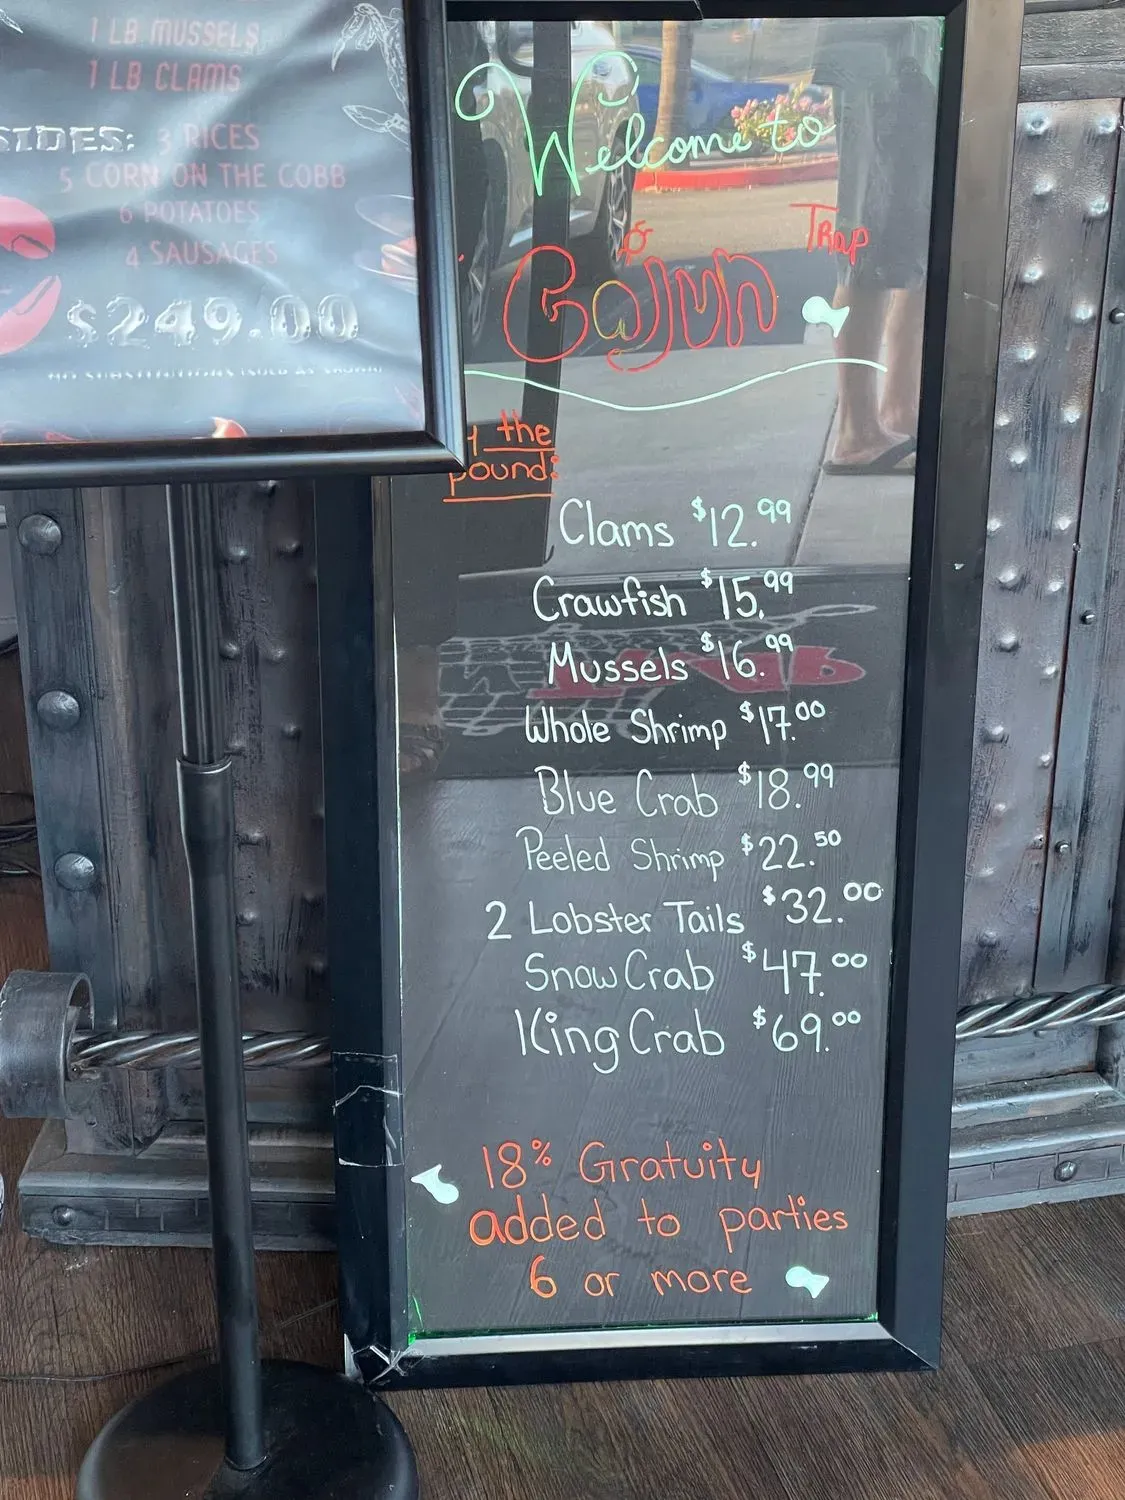 1 LB MUSSELS
1 LB CLAMS
SIDES: 3 RICES
5 CORN ON THE COBB
6 POTATOES
4 SAUSAGES
$249.00
NO SUBSTITUTIONS
Welcome to
Cajun Trap
the
pound:
Clams $12.99
Crawfish $15.99
Mussels $16.99
Whole Shrimp $17.00
Blue Crab $18.99
Peeled Shrimp $22.50
2 Lobster Tails $32.00
Snow Crab $47.00
King Crab $69.00
18% Gratuity
added to parties
6 or more